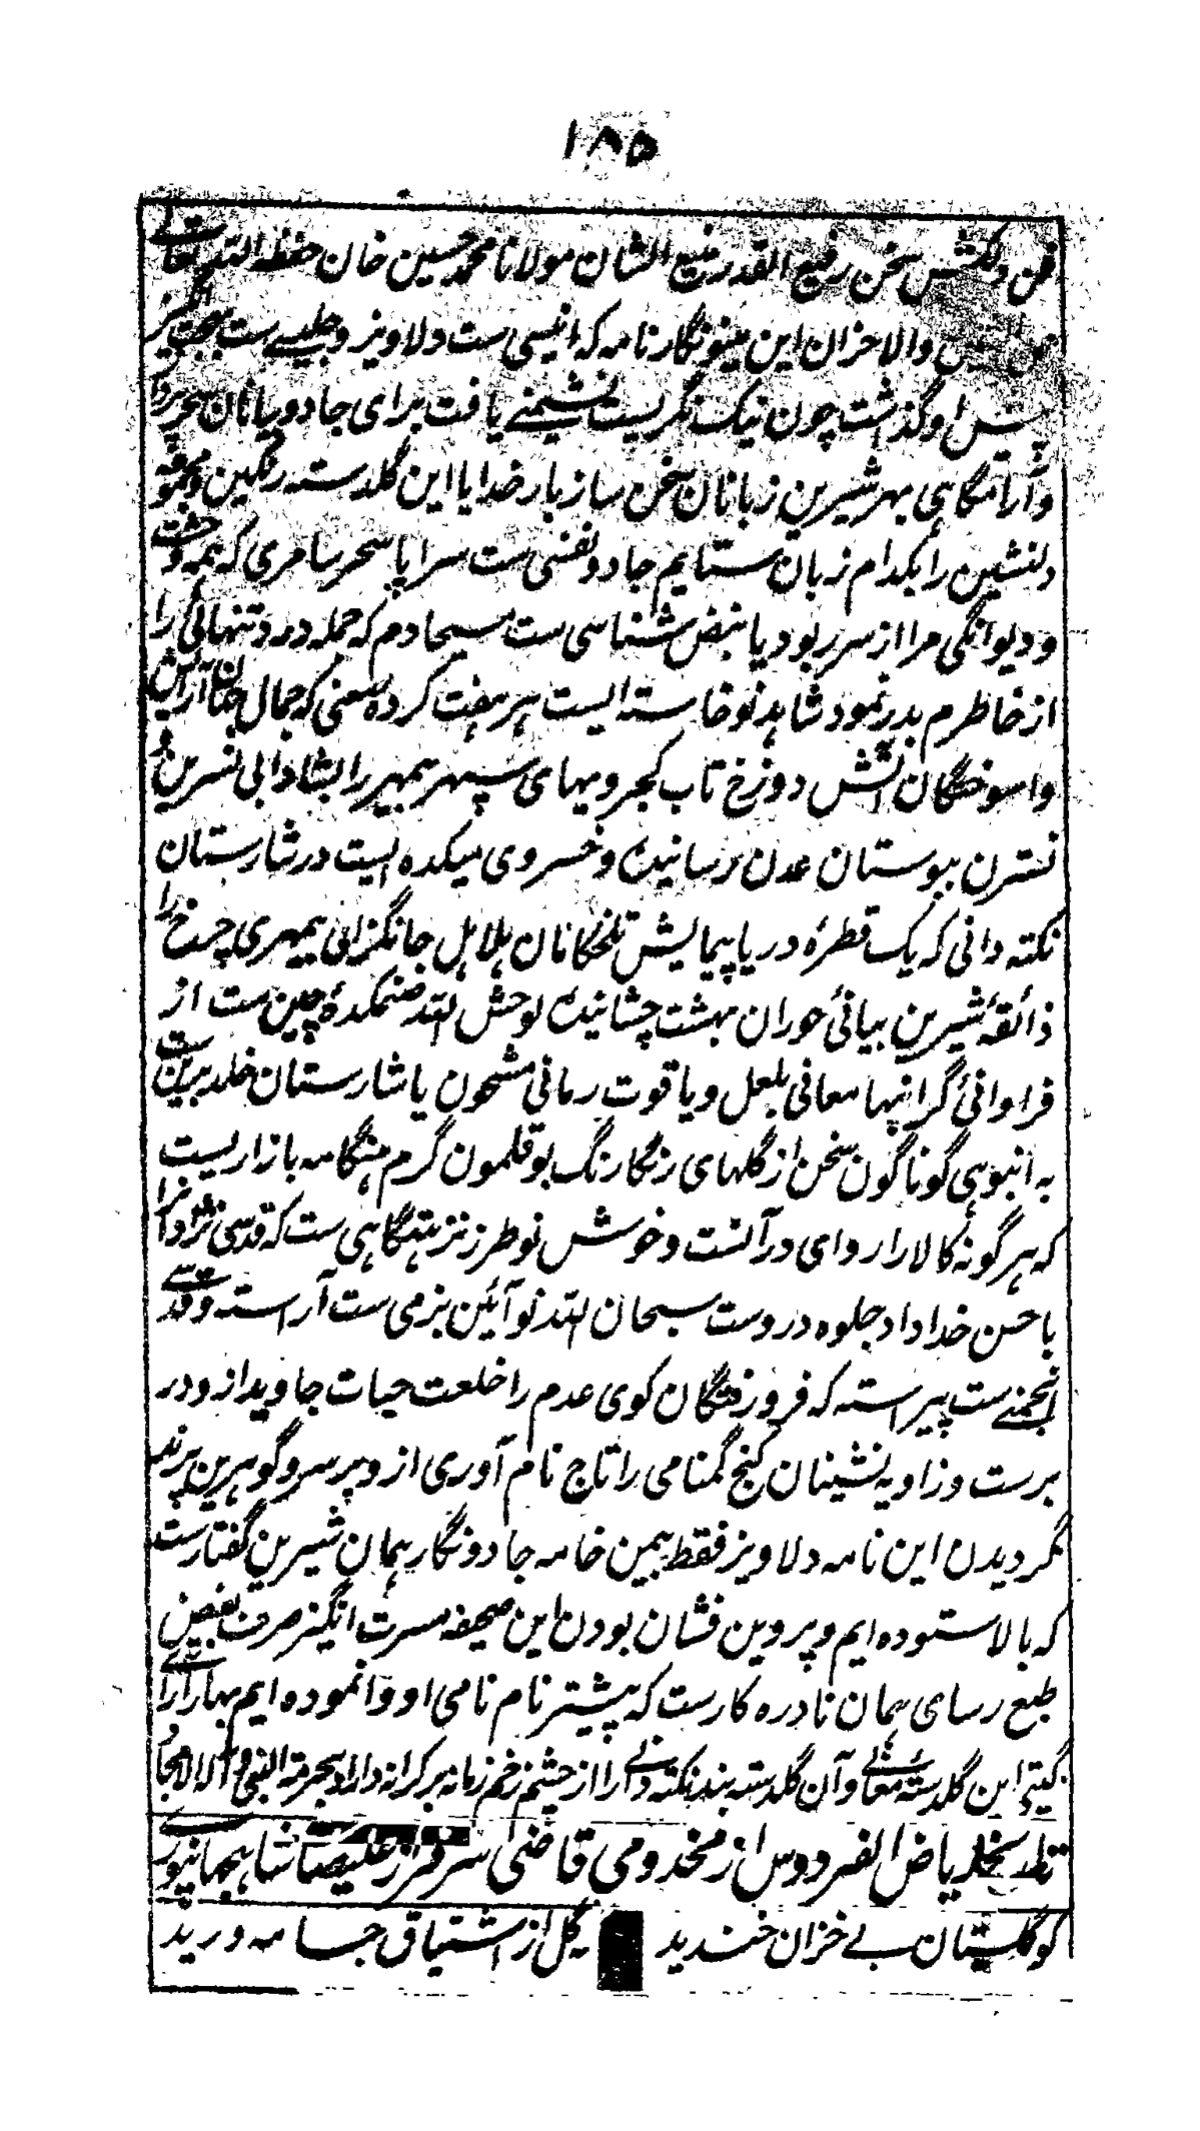 ۱۸۵
فن دلکش سخن رفیع القدر منیع الشان مولانا محمد حسین خان حفظه الله تعالے
والاحزان این مینو نگارنامه که انیسی ست دلاویز و جلیسے ست بهجت انگیز
پیش او گذشت چون نیک نگریست نشیمنے یافت برای جادو بیانان سحر پرداز
و آرامگاہی بهر شیرین زبانان سخن ساز بار خدایا این گلدسته رنگین و مجموعه
دلنشین را بکدام زبان ستایم جادو نفسی ست سراپا سحر سامری که همه وحشت
و دیوانگی مرا از سر ربود یا نبض شناسی ست مسیحا دم که جمله درد تنهائی را
از خاطرم بدر نمود شاہد نو خاسته ایست ہر ہفت کرده معنی که جمال جهان آرایش
واسوختگان آتش دوزخ تاب کجرویهای سپهر بیمهر را بشادابی نسرین و
نسترن ببوستان عدن رسانیدہ و خسروی میکده ایست در شارستان
نکته دانی که یک قطرۂ دریا پیمایش تلخکامان ہلاہل جانگزائی بیمهری چرخ را
ذائقۂ شیرین بیانیٔ حوران بهشت چشانیدہ لوحش الله صنمکدۂ چین ست از
فراوانیٔ گرانبها معانی بلعل و یاقوت رمانی مشحون یا شارستان خلد برین ست
به انبوہی گوناگون سخن از گلهای رنگارنگ بوقلمون گرم ہنگامه بازاریست
که ہر گونه کالا را روای در آنست و خوش نوطرز نزہتگاہی ست که قدسی نژاد آنرا
با حسن خداداد جلوه دروست سبحان الله نو آئین بزمی ست آراسته و قدسے
انجمنے ست پیراسته که فرو رفتگان کوی عدم را خلعت حیات جاوید از و در
برست و زاویه نشینان کنج گمنامی را تاج نام آوری از و بر سر و گوہرین پرند
گردیدن این نامه دلاویز فقط بیمن خامه جادو نگار ہمان شیرین گفتارست
که بالا ستوده ایم و پروین فشان بودن این صحیفه مسرت انگیز صرف بفیض
طبع رسای ہمان نادره کارست که پیشتر نام نامی او وانموده ایم بهار آرائے
گیتی این گلدستۂ معانے و آن گلدسته بند نکته دانے را از چشم زخم زمانه بر کرانه داراد بحرمة النبی و آله الامجاد
از مخدومی قاضی سرفراز علیصاحب شاہجهانپورے
کو گلستان بے خزان خندید
گل از اشتیاق جامه درید